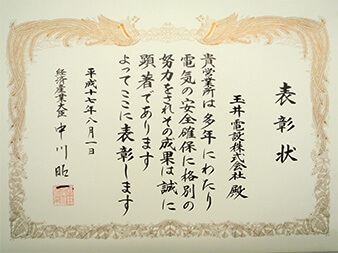 表彰状
玉井電設株式会社 殿
貴営業所は多年にわたり
電気の安全確保に格別の
努力をされその成果は誠に
顕著であります
よってここに表彰します
平成十七年八月一日
経済産業大臣 中川昭一